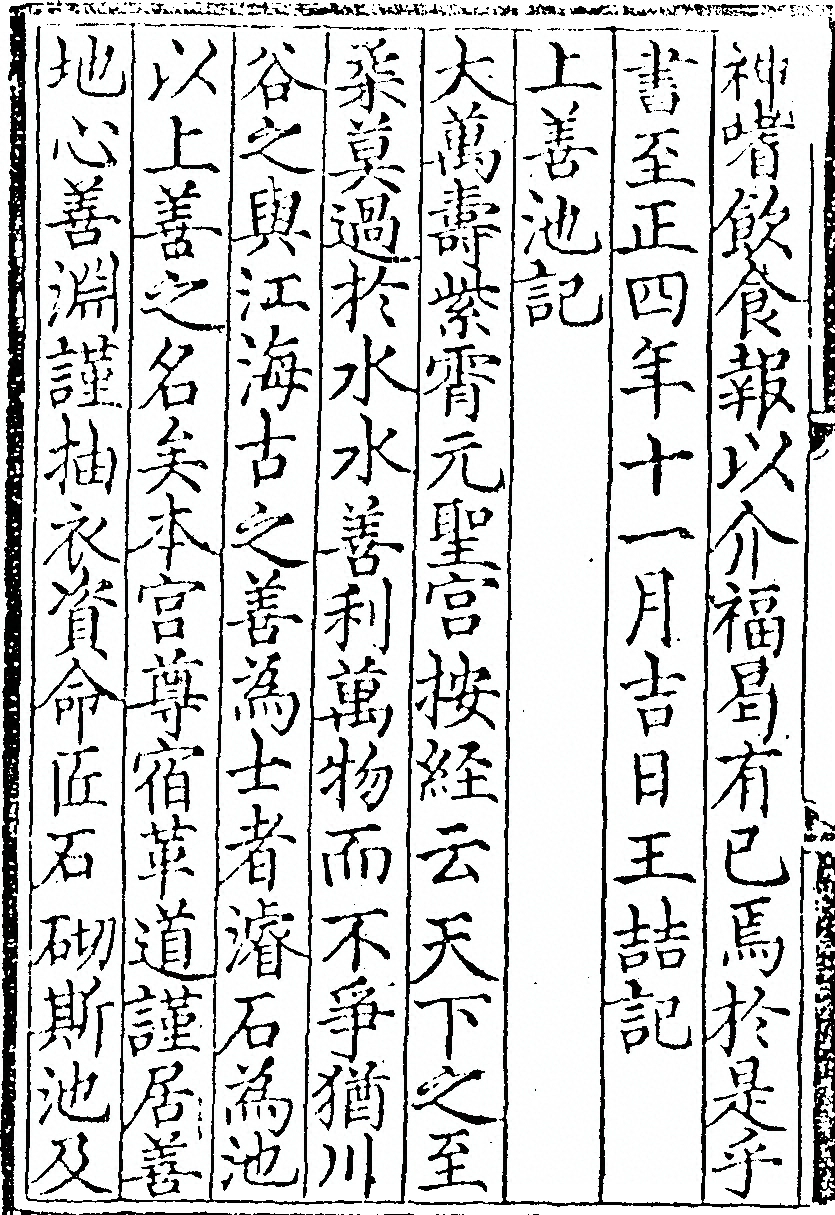 神嗜飲食報以介福曷有已焉於是乎
書至正四年十一月吉日王喆記
上善池記
大萬壽紫霄元聖宫按經云天下之至
柔莫過於水水善利萬物而不爭猶川
谷之與江海古之善為士者濬石為池
以上善之名矣本宫尊宿革道謹居善
地心善淵謹抽衣資命匠石砌斯池及